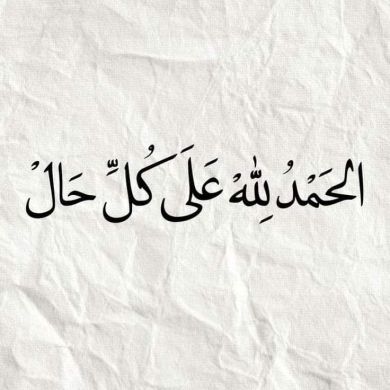 الحَمْدُ لِلّٰهْ عَلَى كُلِّ حَالْ